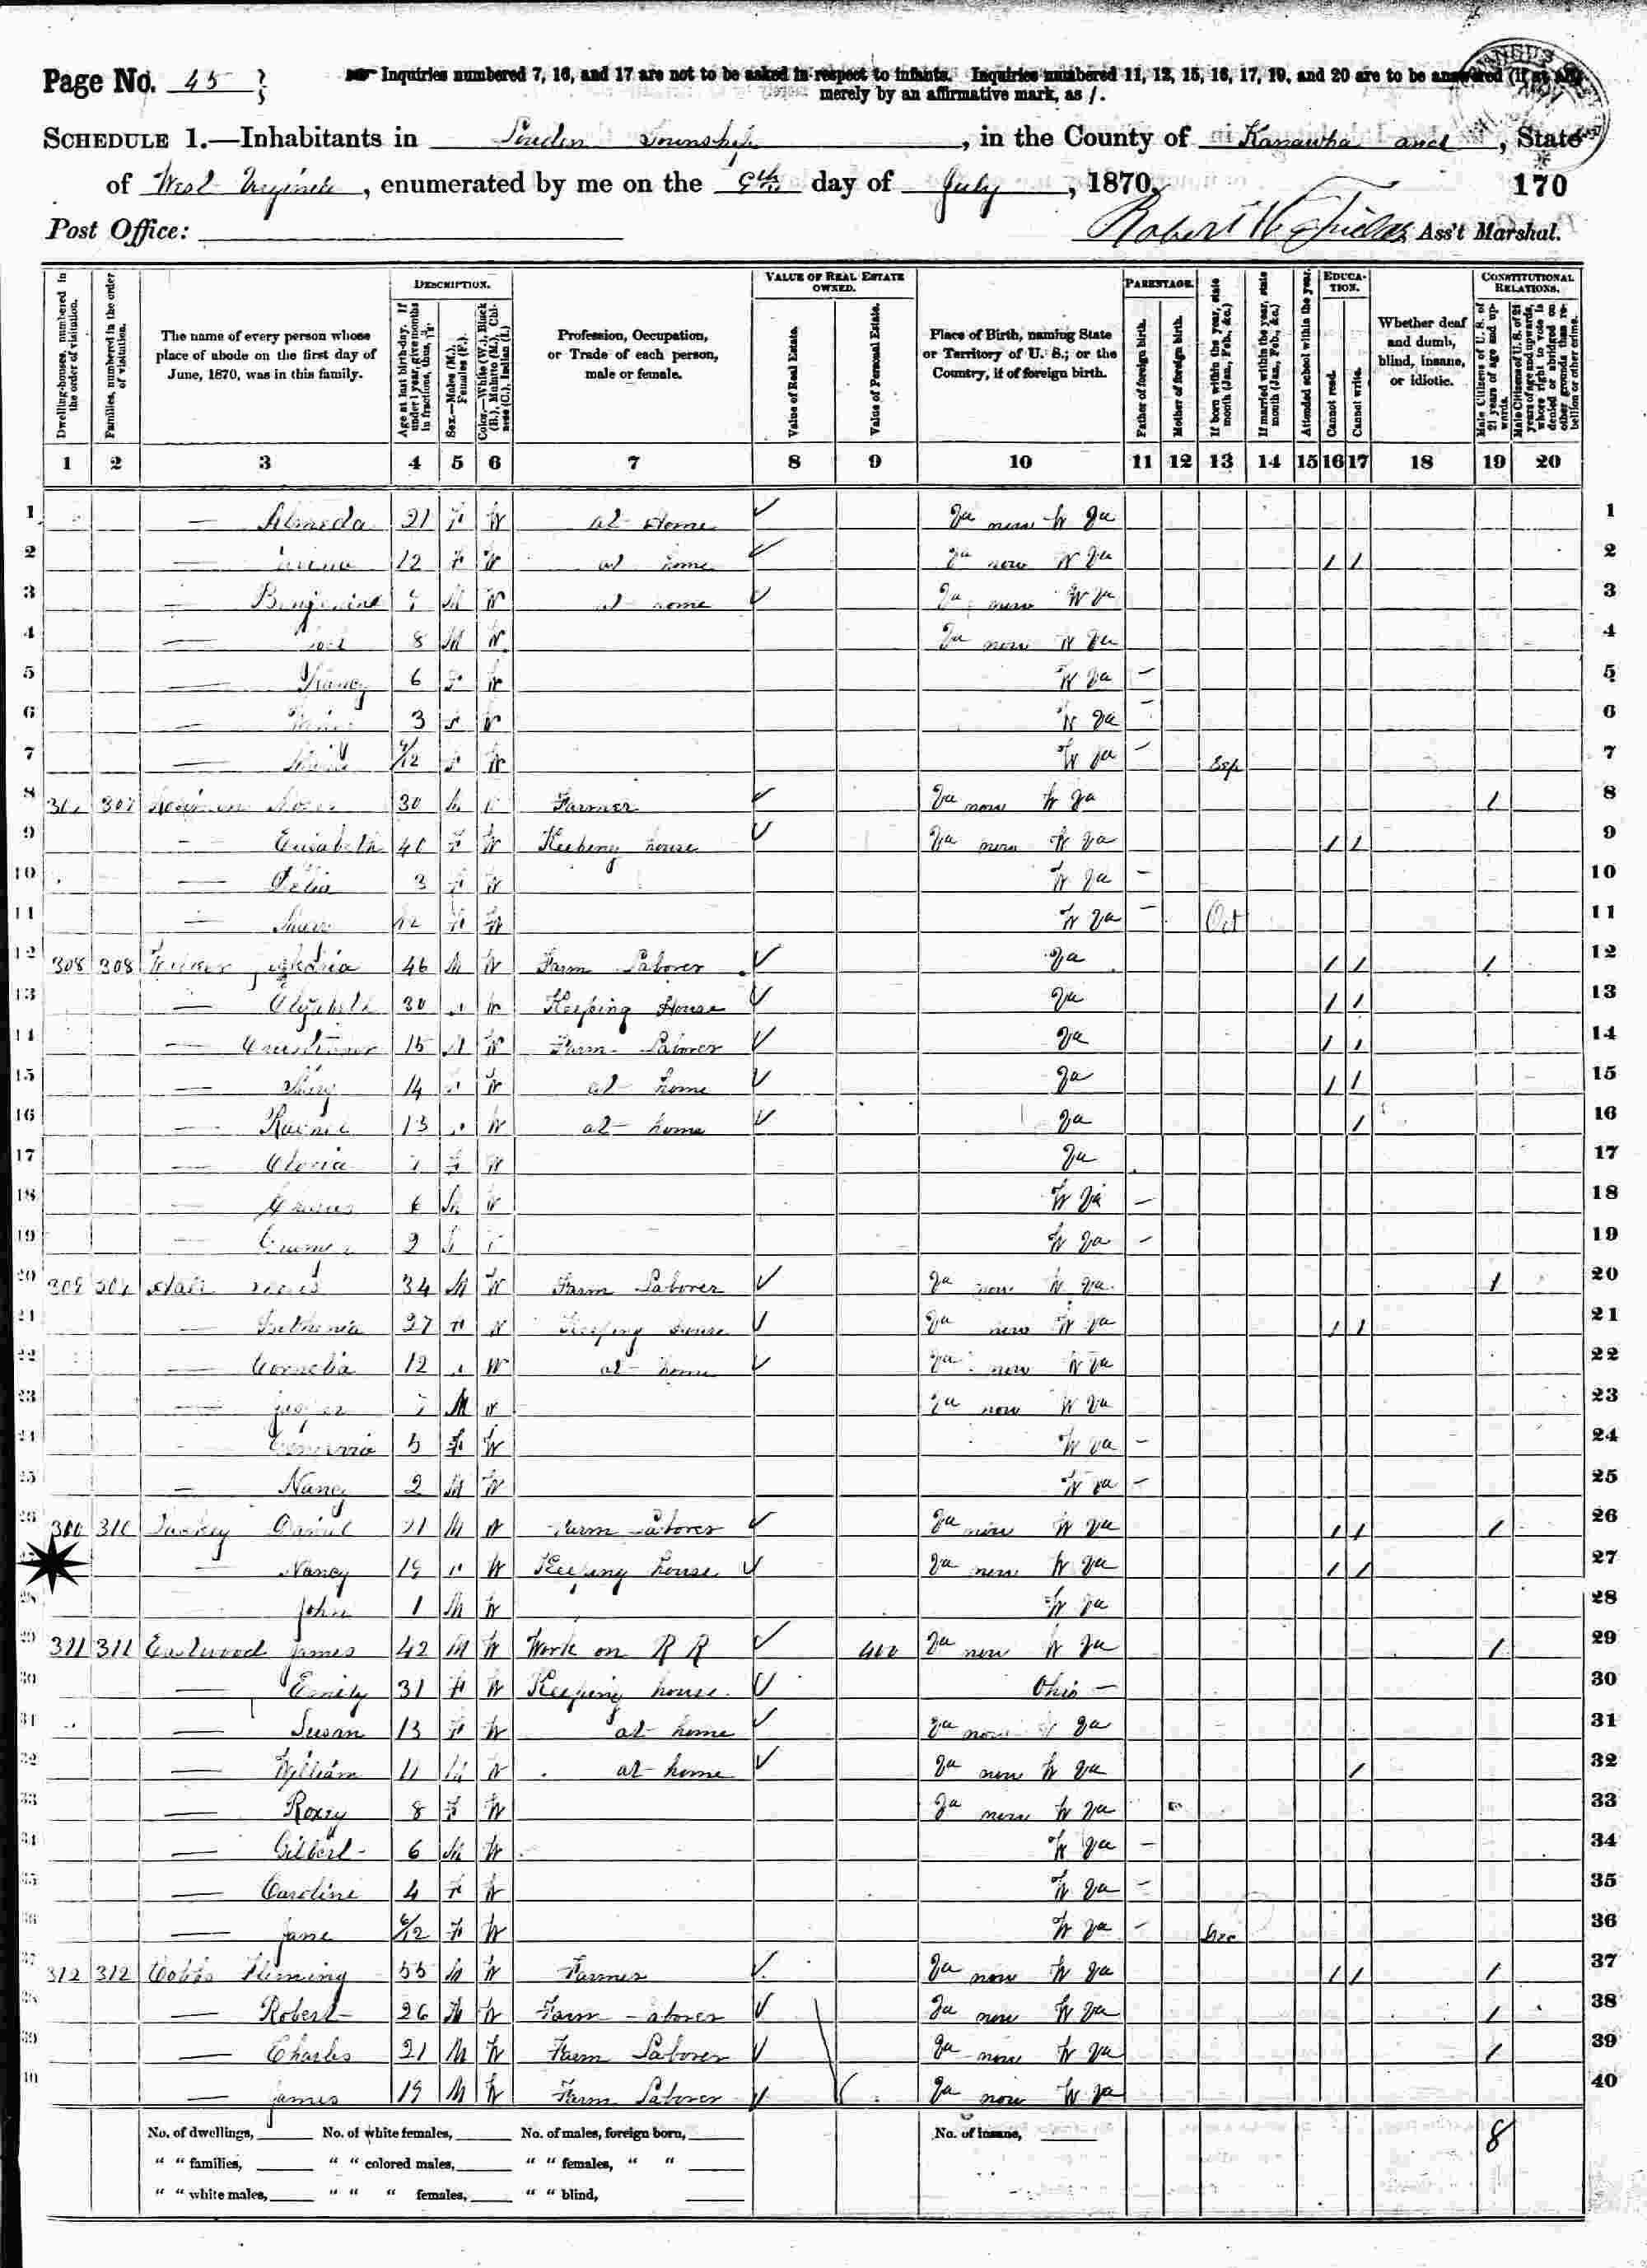 Page No. 45
Inquiries numbered 7, 16, and 17 are not to be asked in respect to infants. Inquiries numbered 11, 12, 15, 16, 17, 19, and 20 are to be answered (if at all)
merely by an affirmative mark, as /.
SCHEDULE 1.—Inhabitants in Township, in the County of Kanawha and, State
of West Virginia, enumerated by me on the 9th day of July, 1870.
170
Post Office: Robert Ass't Marshal.
DESCRIPTION. VALUE OF REAL ESTATE OWNED. PARENTAGE. EDUCATION. CONSTITUTIONAL RELATIONS.
Dwelling-houses, numbered in the order of visitation.
Families, numbered in the order of visitation.
The name of every person whose place of abode on the first day of June, 1870, was in this family.
Age at last birth-day. If under 1 year, give months in fractions, thus,
Sex.—Males (M.), Females (F.)
Color.—White (W.), Black (B.), Mulatto (M.), Chinese (C.), Indian (I.)
Profession, Occupation, or Trade of each person, male or female.
Value of Real Estate.
Value of Personal Estate.
Place of Birth, naming State or Territory of U. S.; or the Country, if of foreign birth.
Father of foreign birth.
Mother of foreign birth.
If born within the year, state month (Jan., Feb., &c.)
If married within the year, state month (Jan., Feb., &c.)
Attended school within the year.
Cannot read.
Cannot write.
Whether deaf and dumb, blind, insane, or idiotic.
Male Citizens of U. S. of 21 years of age and upwards.
Male Citizens of U. S. of 21 years of age and upwards, whose right to vote is denied or abridged on other grounds than rebellion or other crime.
1 2 3 4 5 6 7 8 9 10 11 12 13 14 15 16 17 18 19 20
1 — Almeda 21 F W at Home ✓ Va now W Va 1
2 — 12 F W at home ✓ Va now W Va / / 2
3 — M W at home ✓ Va now W Va 3
4 — 8 M W Va now W Va 4
5 — Nancy 6 F W W Va – 5
6 — 3 W W Va – 6
7 — /12 W W Va – Sep 7
8 307 30 M Farmer ✓ Va now W Va / 8
9 — Elizabeth 40 F W Keeping house ✓ Va now W Va / / 9
10 — Delia 3 F W W Va – 10
11 — /12 F W W Va – Oct 11
12 308 308 46 M W Farm Laborer ✓ Va / / / 12
13 — 30 W Keeping House ✓ Va / / 13
14 — 15 M W Farm Laborer ✓ Va / / 14
15 — Mary 14 W at home ✓ Va / / 15
16 — 13 W at home ✓ Va / 16
17 — F W Va 17
18 — 6 M W W Va – 18
19 — 2 W Va – 19
20 309 Hall 34 M W Farm Laborer ✓ Va now W Va / 20
21 — 27 F W Keeping house ✓ Va now W Va / / 21
22 — Cornelia 12 W at home ✓ Va now W Va 22
23 — 7 M W Va now W Va 23
24 — 5 F W W Va – 24
25 — Nancy 2 M W W Va – 25
26 310 310 Daniel 21 M W Farm Laborer ✓ Va now W Va / / / 26
— Nancy 19 W Keeping house ✓ Va now W Va / / 27
28 — John 1 M W W Va 28
29 311 311 Eastwood James 42 M W Work on R R ✓ 400 Va now W Va / 29
30 — Emily 31 F W Keeping house ✓ Ohio – 30
31 — Susan 13 F W at home ✓ Va now W Va 31
32 — William 11 M W at home ✓ Va now W Va / 32
33 — Roxey 8 F W Va now W Va 33
34 — Gilbert 6 M W W Va – 34
35 — Caroline 4 F W W Va – 35
36 — Jane 6/12 F W W Va – Dec 36
37 312 312 Cobbs Fleming 55 M W Farmer ✓ Va now W Va / / / 37
38 — Robert 26 M W Farm Laborer ✓ Va now W Va / 38
39 — Charles 21 M W Farm Laborer ✓ Va now W Va / 39
40 — James 19 M W Farm Laborer ✓ Va now W Va 40
No. of dwellings, No. of white females, No. of males, foreign born, No. of insane, 8
" " families, " " colored males, " " females, " "
" " white males, " " " females, " " blind,